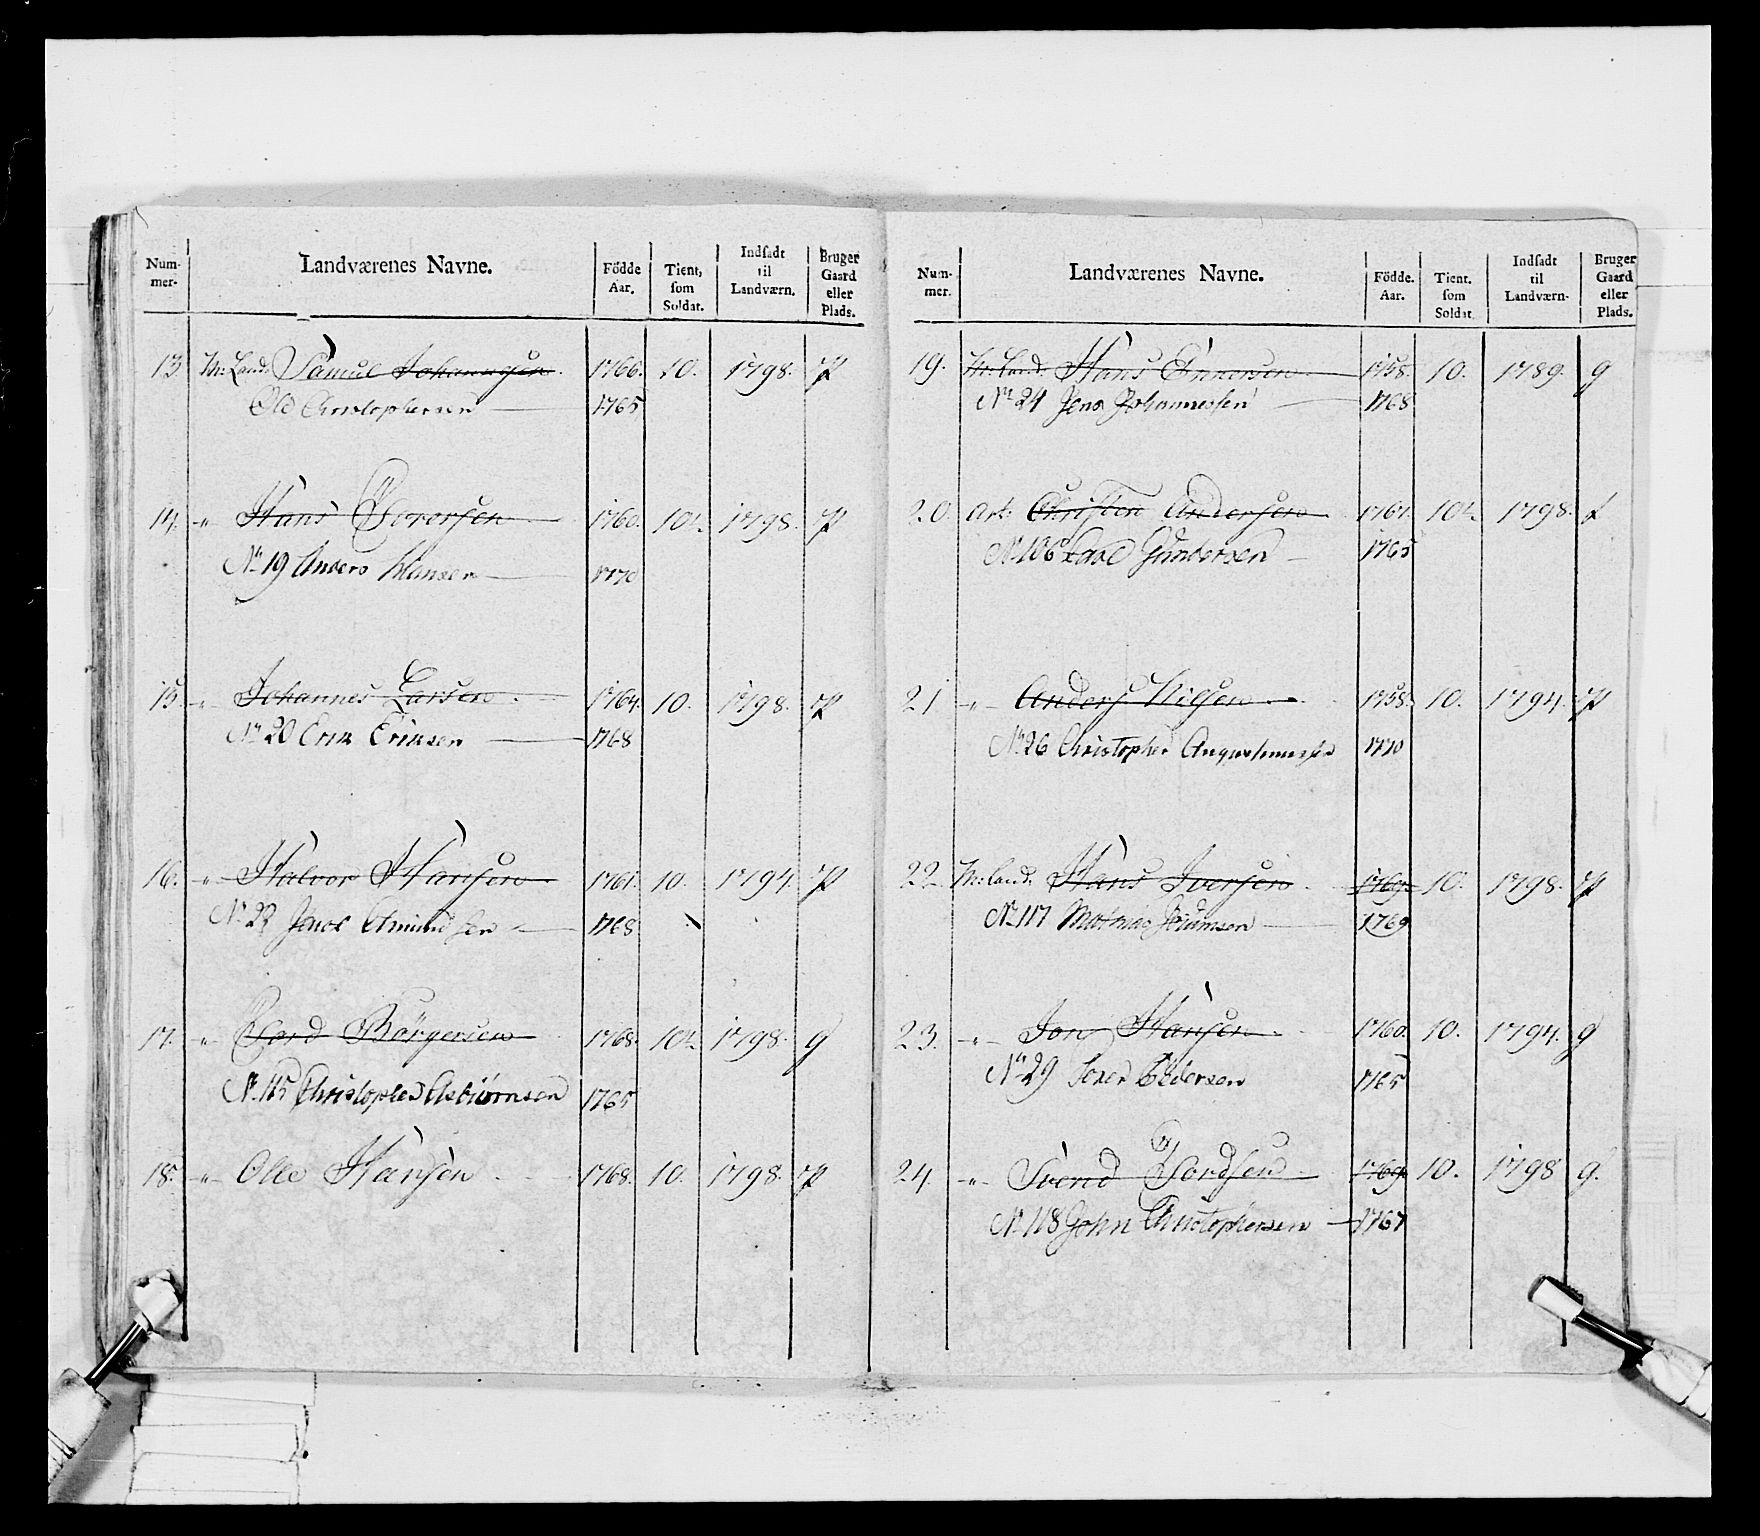 Num-
mer-
Landværenes Navne.
Födde
Aar.
Tient,
som
Soldat.
Indsadt
til
Landværn.
Bruger
Gaard
eller
Plads.
13. Samuel Johannesen. 1766. 10. 1798. P
Ole Christophersen 1765
14. " Hans 1760. 10½ 1798. P
No 19 Anders Hansen 1770
15. " Johannes Larsen 1764. 10. 1798. P
No 20 Erik Eriksen 1768
16. " Halvor Hansen 1761. 10. 1794. P
Amundsen 1768
17. " Börgersen 1768. 10½ 1798. g
No 115 Christopher Asbiörnsen 1765
18. " Olle Hansen 1768. 10. 1798. P
Num-
mer.
Landværenes Navne.
Födde.
Aar.
Tient.
som
Soldat.
Indsadt
til
Landværn-
Bruger
Gaard
eller
Plads.
19. Hans 1758. 10. 1789. g
No 24 Jens Johannessen 1768
20. Art: Christen Andersen 1761. 10½ 1798.
No 106 Lars Gundersen 1765
21 " Anders Nilsen 1758. 10. 1794. P
No 26 Christopher 1770
22. Hans Iversen 1769. 10. 1798. P
No 117 1769
23. " Jon Hansen 1760. 10. 1794. g
No 29 Pedersen 1765
24. " Svend Tordsen 1769. 10. 1798 g.
No 118 John Christophersen 1767